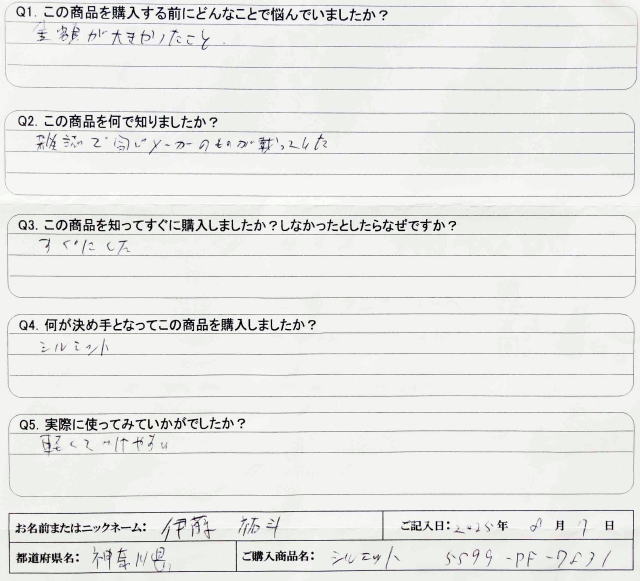 Q1. この商品を購入する前にどんなことで悩んでいましたか？
金額が大きかったこと.
Q2. この商品を何で知りましたか？
雑誌で同じメーカーのものが載っていた
Q3. この商品を知ってすぐに購入しましたか？しなかったとしたらなぜですか？
すぐにした
Q4. 何が決め手となってこの商品を購入しましたか？
シルエット
Q5. 実際に使ってみていかがでしたか？
軽くてつけやすい
お名前またはニックネーム: 伊藤 拓斗 ご記入日: 2025年 8月 7日
都道府県名: 神奈川県 ご購入商品名: シルエット 5599-PF-7531